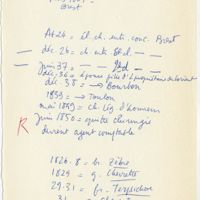 Brest
At 24 = il ch. ent. conc. Brest
— déc 26 = ch ent. 2d —
— Juin 37 = 2d —
déc. 36 = épouse fille d'1 propriétaire de Lorient
déc 38 = → Bourbon
1839 = → Toulon
mai 1849 = ch. Lég. d'honneur
R Juin 1850 = quitte chirurgie
devient agent comptable
1826.8 = br. Zèbre
1829 = g. Chevrette
29.31 = fr. Terpsichore
31